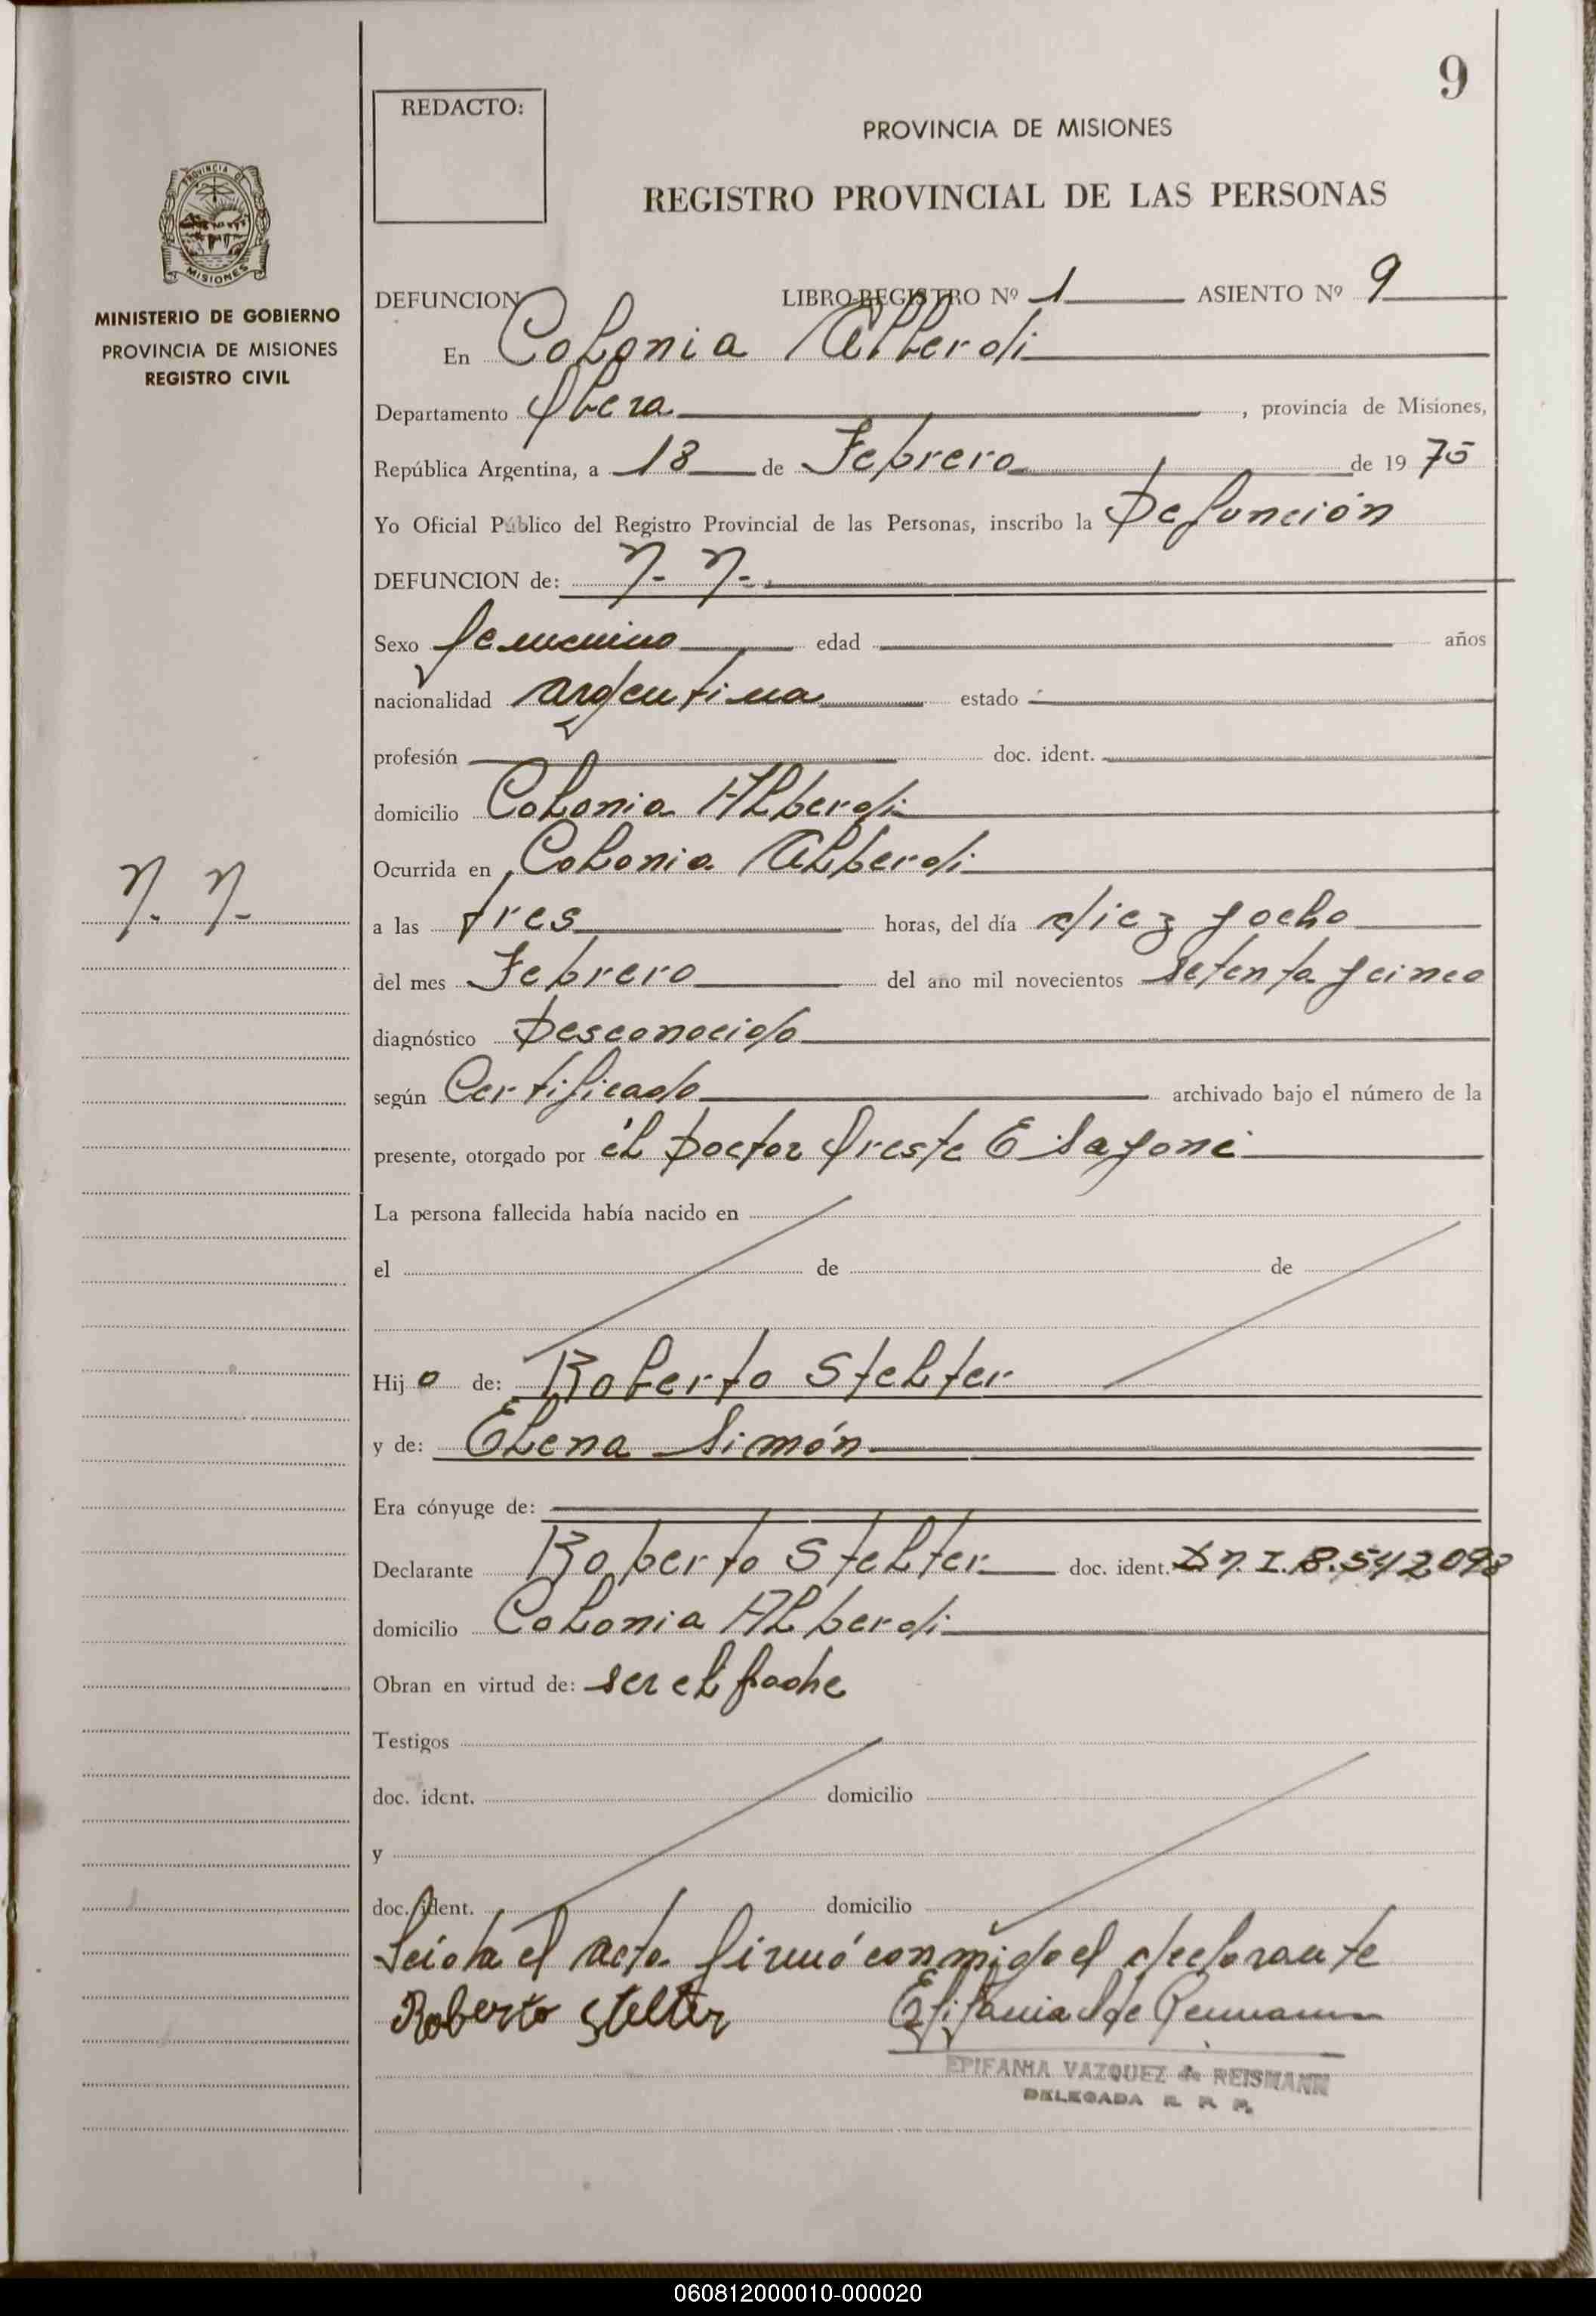 9
REDACTO:
PROVINCIA DE MISIONES
REGISTRO PROVINCIAL DE LAS PERSONAS
PROVINCIA DE
MISIONES
MINISTERIO DE GOBIERNO
PROVINCIA DE MISIONES
REGISTRO CIVIL
DEFUNCION LIBRO-REGISTRO Nº 1 ASIENTO Nº 9
En Colonia Alberdi
Departamento Obera, provincia de Misiones,
República Argentina, a 18 de Febrero de 19 75
Yo Oficial Público del Registro Provincial de las Personas, inscribo la Defunción
DEFUNCION de: N. N.
Sexo femenino edad años
nacionalidad argentina estado
profesión doc. ident.
domicilio Colonia Alberdi
Ocurrida en Colonia Alberdi
N. N.
a las tres horas, del día diez y ocho
del mes Febrero del año mil novecientos setenta y cinco
diagnóstico Desconocido
según Certificado archivado bajo el número de la
presente, otorgado por el Doctor Oreste E
La persona fallecida había nacido en
el de de
Hij o de: Roberto Stelter
y de: Elena Simón
Era cónyuge de:
Declarante Roberto Stelter doc. ident. D N. I. 8.542098
domicilio Colonia Alberdi
Obran en virtud de: ser el padre
Testigos
doc. ident. domicilio
y
doc. ident. domicilio
Leida el acta firmó conmigo el declarante
Roberto Stelter Epifania V de Reismann
EPIFANIA VAZQUEZ de REISMANN
DELEGADA R. P. P.
060812000010-000020